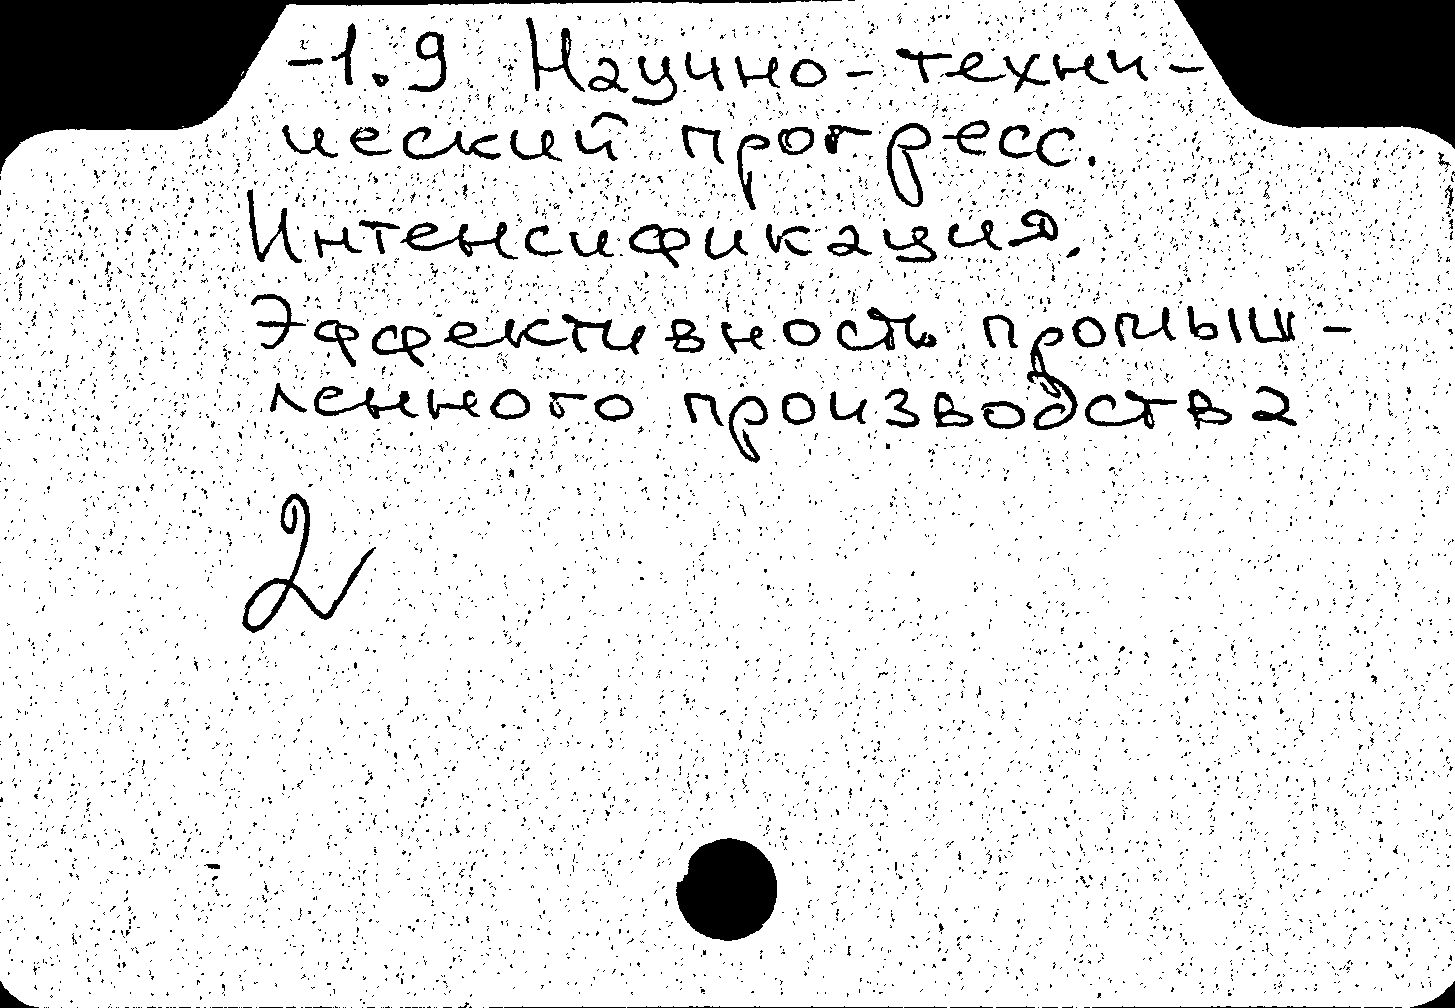 -1.9 Научно-техни-
ческий прогресс.
Интенсификация.
Эффективность промыш-
ленного производства
2